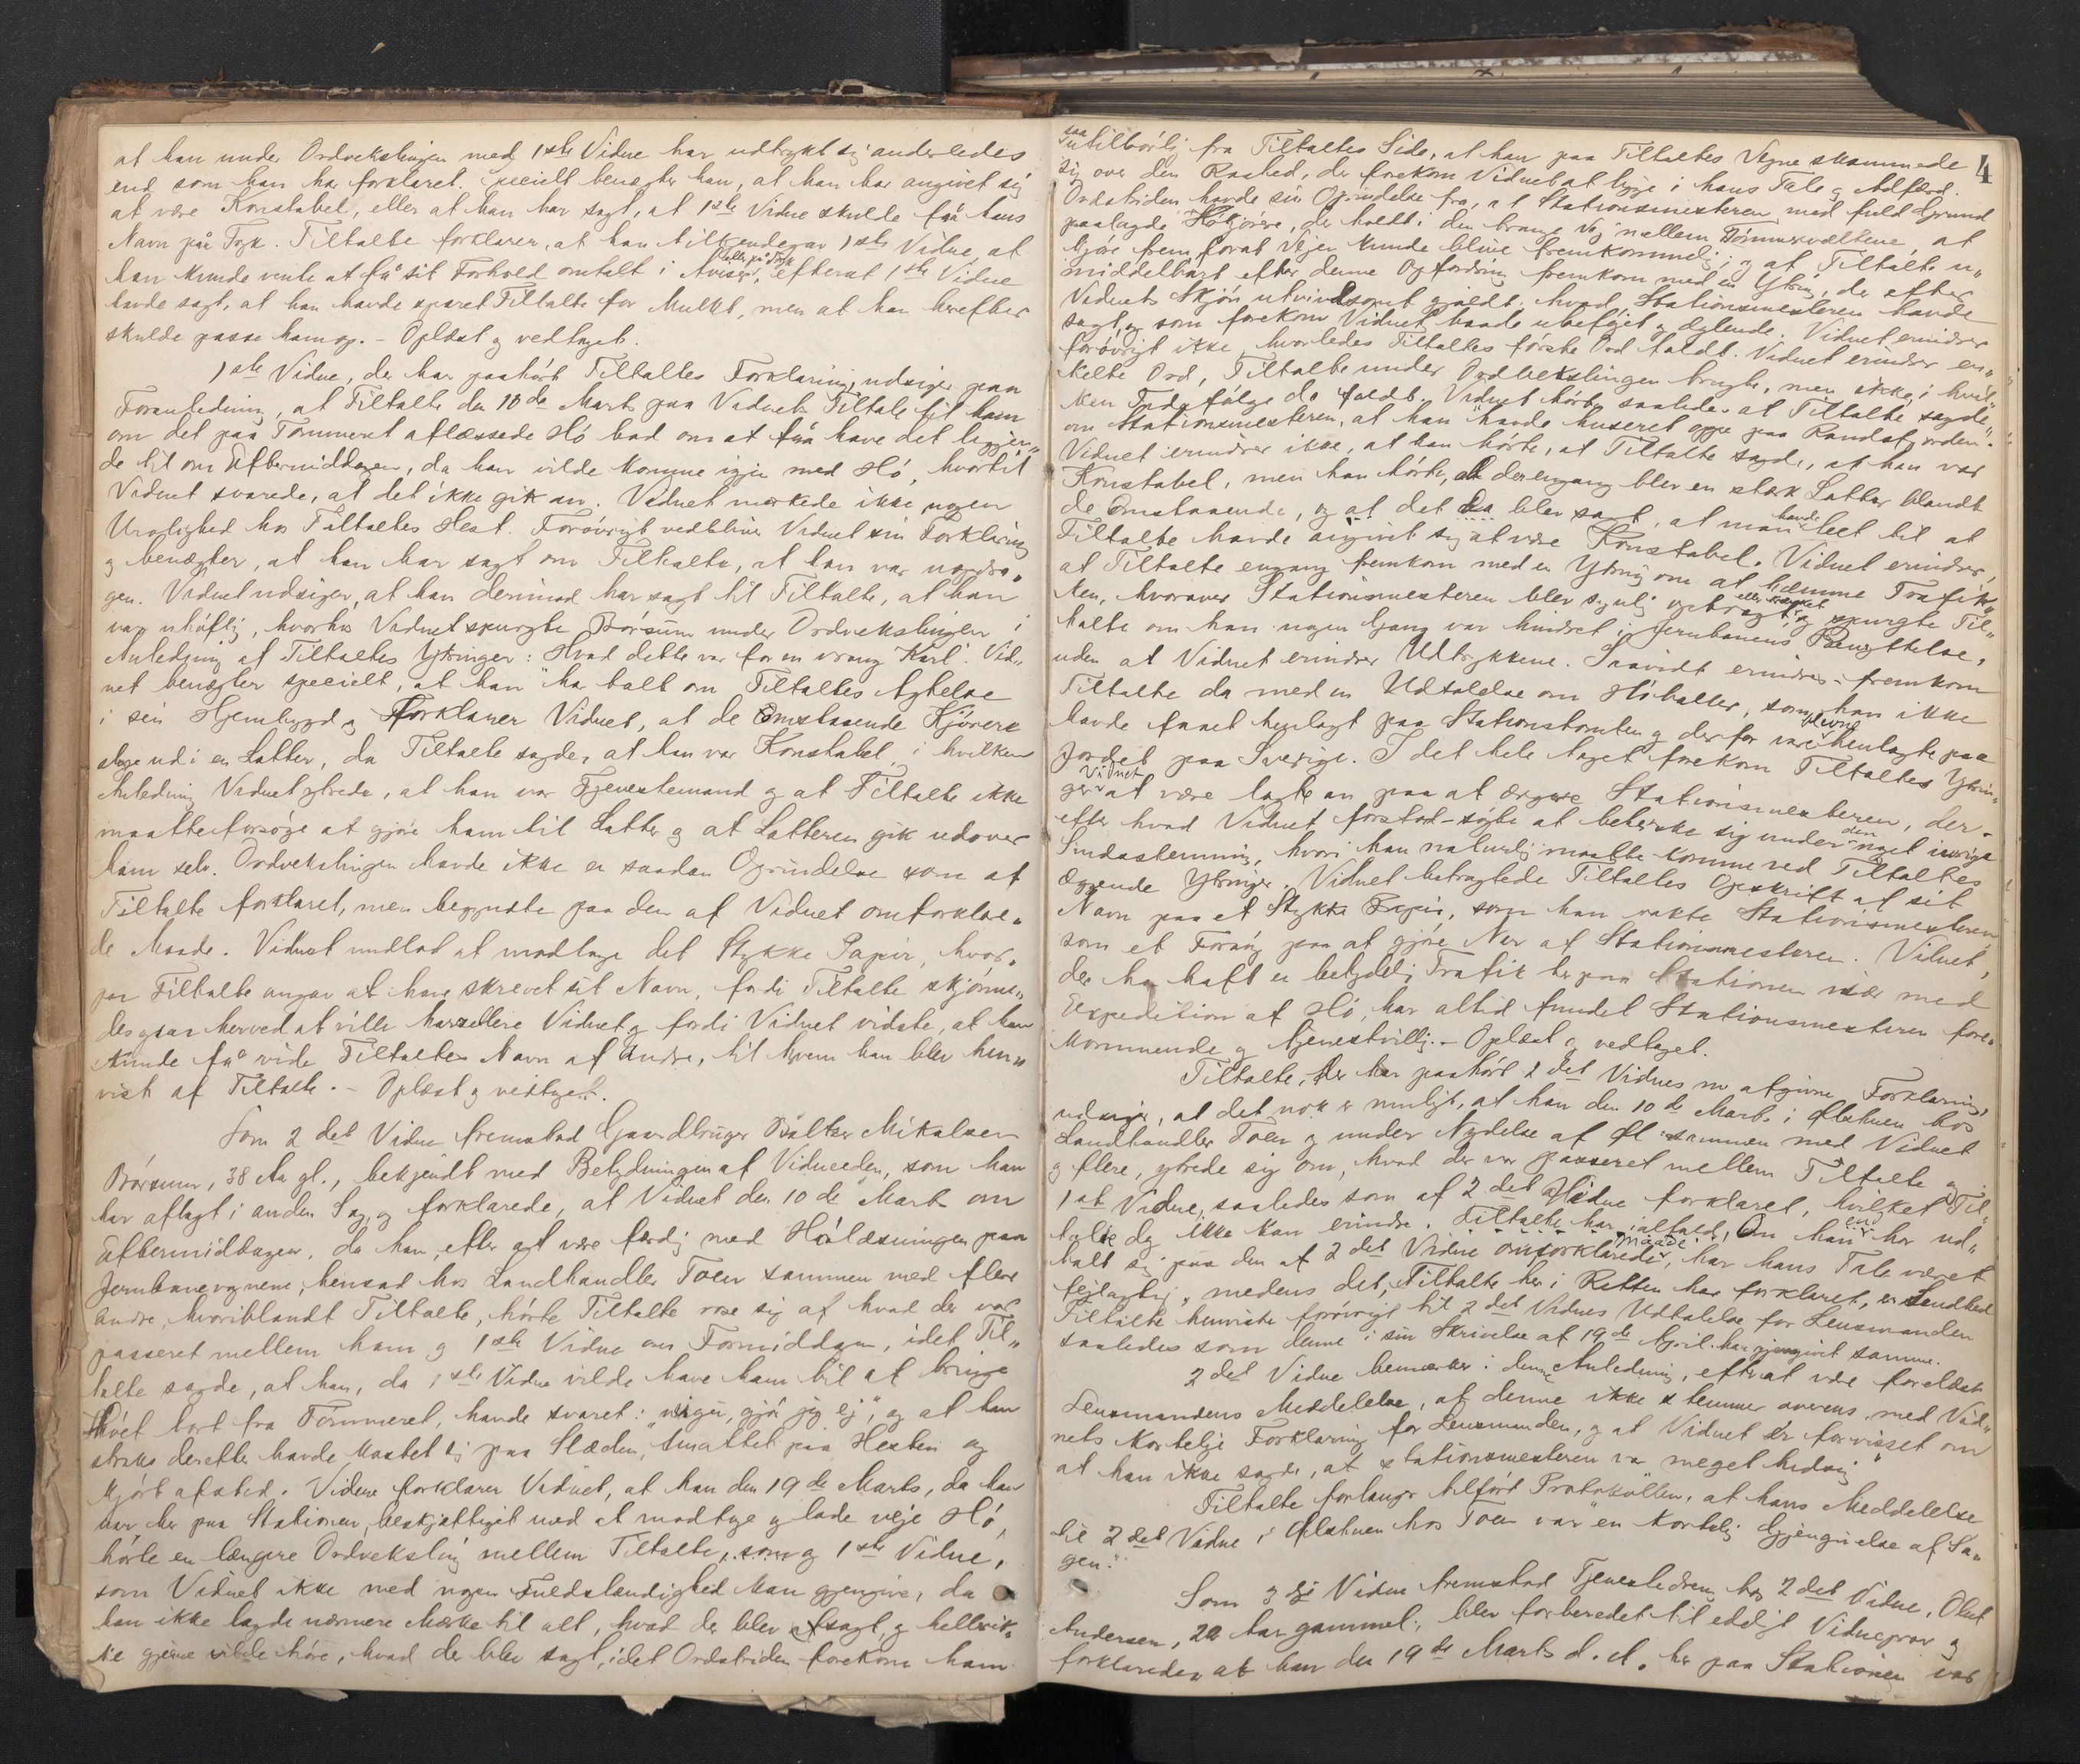 at han under Ordvekslingen med 1ste Vidne har udtrykt sig anderledes
end som han har forklaret. Specielt benegter han, at han har angivet sig
at være Konstabel, eller at han har sagt, at 1ste Vidne skulde få hans
Navn på Tryk. Tiltalte forklarer, at han tilkjendegav 1ste Vidne, at
han kunde vente at få sit Forhold omtalt i Aviser, eller på Tryk efterat 1ste Vidne
havde sagt, at han havde sparet Tiltalte for Mulkt, men at han herefter
skulde passe ham op. - Oplæst og vedtaget.
1ste Vidne, der har paahört Tiltaltes Forklaring, udsiger paa
Foranledning, at Tiltalte den 10de Marts paa Vidnets Tiltale til ham
om det paa Tömmeret aflæssede Hö bad om at få have det liggen„
de til om Eftermiddagen, da han vilde komme igjen med Hö, hvortil
Vidnet svarede, at det ikke gik an. Vidnet mærkede ikke nogen
Urolighed hos Tiltaltes Hest. Forövrigt vedbliver Vidnet sin Forklaring
og benægter, at han har sagt om Tiltalte, at han var uopdra„
gen. Vidnet udsiger, at han derimod har sagt til Tiltalte, at han
var uhöflig, hvorhos Vidnet spurgte Börsum under Ordvekslingen i
Anledning af Tiltaltes Ytringer: "Hvad dette var for en vrang Karl". Vid„
net benægter specielt, at han har talt om Tiltaltes Agtelse
i sin Hjembygd og forklarer Vidnet, at de omstaaende Kjörere
sloge ud i en Latter, da Tiltalte sagde, at han var Konstabel, i hvilken
Anledning Vidnet ytrede, at han var Tjenestemand og at Tiltalte ikke
maatte forsöge at gjöre ham til Latter og at Latteren gik udover
ham selv. Ordvekslingen havde ikke en saadan Oprindelse som af
Tiltalte forklaret, men begyndte paa den af Vidnet omforklare„
de Maade. Vidnet undlod at modtage det Stykke Papir, hvor„
paa Tiltalte angav at have skrevet sit Navn, fordi Tiltalte skjönne„
des herved at ville harsellere Vidnet og fordi Vidnet vidste, at han
kunde få vide Tiltaltes Navn af Andre, til hvem han blev hen„
vist af Tiltalte. - Oplæst og vedtaget.
Som 2det Vidne fremstod Gaardbruger Balter Mikalsen
Börsum, 38 Aar gl., bekjendt med Betydningen af Vidneeden, som han
har aflagt i anden Sag, og forklarede, at Vidnet den 10de Marts om
Eftermiddagen, da han, efter at være færdig med Hölæsningen paa
Jernbanevognene, hensad hos Landhandler Toen sammen med flere
Andre, hvoriblandt Tiltalte, hörte Tiltalte rose sig af hvad der var
passeret mellem ham og 1ste Vidne om Formiddagen, idet Til„
talte sagde, at han, da 1ste Vidne vilde have ham til at bringe
Höet bort fra Tömmeret, havde svaret: "nigu, gjör jeg ej", og at han
straks derefter havde kastet sig paa Slæden, smattet paa Hesten og
kjört afsted. Videre forklarer Vidnet, at han den 19de Marts, da han
var her paa Stationen, beskjæftiget med at modtage og lade veje Hö,
hörte en længere Ordveksling mellem Tiltalte, som og 1ste Vidne,
som Vidnet ikke med nogen Fuldstændighed kan gjengive, da
han ikke lagde nærmere Mærke til alt, hvad der blev sagt, og hellerik„
ke gjerne vilde höre, hvad der blev sagt, idet Ordstriden forekom ham
4
saa utilbörlig fra Tiltaltes Side, at han paa Tiltaltes Vegne skammede
sig over den Raahed, der forekom Vidnet at ligge i hans Tale og Adfærd.
Ordstriden havde sin Oprindelse fra, at Stationsmesteren med fuld Grund
paalagde Hökjörere, der holdt i den trange Vej mellem Tömmervæltene, at
kjöre frem, forat Vejen kunde blive fremkommelig; og at Tiltalte u„
middelbart efter denne Opfordring fremkom med en Ytring, der efter
Vidnets Skjön utvivlsomt gjaldt, hvad Stationsmesteren havde
sagt, og som forekom Vidnet baade ubeföjet og æglende. Vidnet erindrer
forövrigt ikke, hvorledes Tiltaltes förste Ord faldt. Vidnet erindrer en„
kelte Ord, Tiltalte under Ordvekslingen brugte, men ikke i hvil„
ken Fölge de faldt. Vidnet hörte saaledes at Tiltalte sagde
om Stationsmesteren, at han "havde huseret oppe paa Randsfjorden".
Vidnet erindrer ikke, at han hörte, at Tiltalte sagde, at han var
Konstabel, men han hörte, at der engang blev en stærk Latter blandt
de Omstaaende, og at det da blev sagt, at man havde leet til at
Tiltalte havde angivet sig at være Konstabel. Vidnet erindrer,
at Tiltalte engang fremkom med en Ytring om at hemme Trafik„
ken, hvorover Stationsmesteren blev synlig opbragt eller krænket og spurgte Til„
talte om han nogen Gang var hindret i Jernbanens Benyttelse,
uden at Vidnet erindrer Udtrykkene. Saavidt erindres fremkom
Tiltalte da med en Udtalelse om Höballer, som han ikke
havde faaet henlagt paa Stationstomten og derfor var blevne henlagte paa
Jordet paa Sverige. I det hele taget forekom Tiltaltes Ytrin„
ger Vidnet at være lagte an paa at ærgere Stationsmesteren, der -
efter hvad Vidnet forstod - sögte at beherske sig under den noget ivrige
Sindsstemning, hvori han naturlig maatte komme ved Tiltaltes
æggende Ytringer. Vidnet betragtede Tiltaltes Opskrift af sit
Navn paa et Stykke Papir, som han rakte Stationsmesteren,
som et Forsög paa at gjöre Nar af Stationsmesteren. Vidnet,
der har haft en betydelig Trafik her paa Stationen især med
Expedition af Hö, har altid fundet Stationsmesteren fore„
kommende og tjenestvillig. - Oplæst og vedtaget.
Tiltalte, der har paahört 2det Vidnes nu afgivne Forklaring,
udsiger, at det nok er muligt, at han den 10de Marts i Ølstuen hos
Landhandler Toen og under Nydelse af Øl sammen med Vidnet
og flere, ytrede sig om, hvad der var passeret mellem Tiltalte og
1ste Vidne, saaledes som af 2det Vidne forklaret, hvilket Til„
talte dog ikke kan erindre. Tiltalte har ialfald, Om han end har ud„
talt sig paa den af 2det Vidne omforklarede Maade, har hans Tale været
fejlagtig, medens det, Tiltalte her i Retten har forklaret, er Sandhed.
Tiltalte henviste forövrigt til 2det Vidnes Udtalelse for Lensmanden
saaledes som denne i sin Skrivelse af 19de April har gjengivet samme.
2det Vidne bemærker i denne Anledning, efterat være forelæst
Lensmandens Meddelelse, at denne ikke stemmer overens med Vid„
nets kortelige Forklaring for Lensmanden, og at Vidnet er forvisset om
at han ikke sagde, at Stationsmesteren var meget hidsig
Tiltalte forlanger tilfört Protokollen, at hans Meddelelse
til 2det Vidne i Ølstuen hos Toen var "en kortelig Gjengivelse af Sa„
gen."
Som 3die Vidne fremstod Tjenestedreng hos 2det Vidne, Oluf
Andersen, 22 Aar gammel, blev forberedet til edeligt Vidneprov og
forklarede, at han den 19de Marts d. A. her paa Stationen var